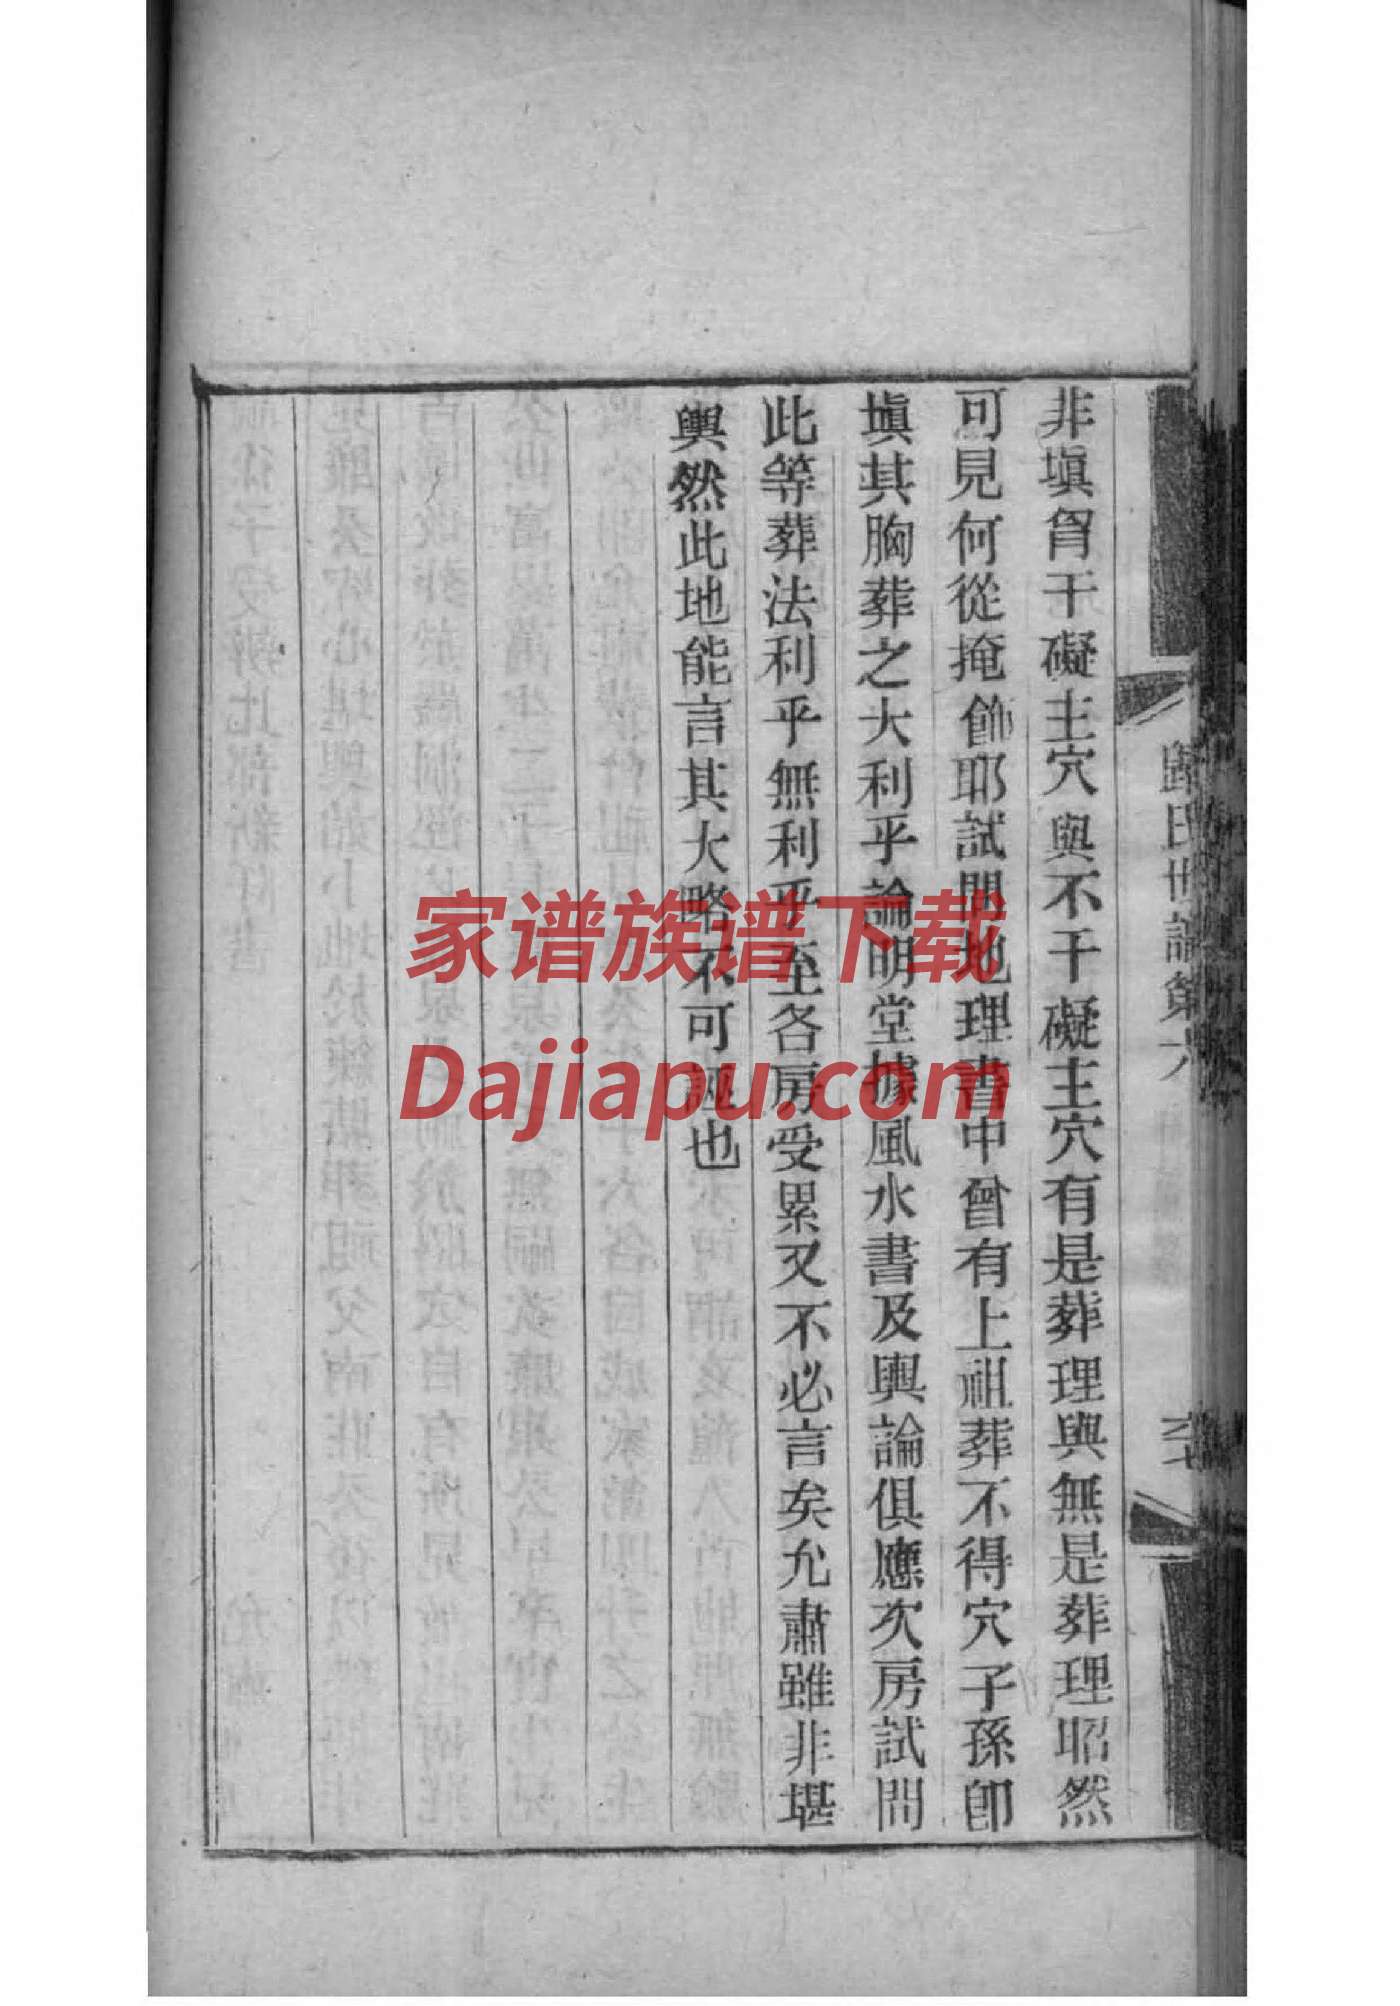 非塡胷干礙主穴與不干礙主穴有是葬理與無是葬理昭然
可見何從掩飾耶試問地理書中曾有上祖葬不得穴子孫卽
塡其胸葬之大利乎論明堂據風水書及輿論俱應次房試問
此等葬法利乎無利乎至各房受累又不必言矣允肅雖非堪
輿然此地能言其大略不可誣也
歸氏世譜第六
六七
家谱族谱下载
Dajiapu.com